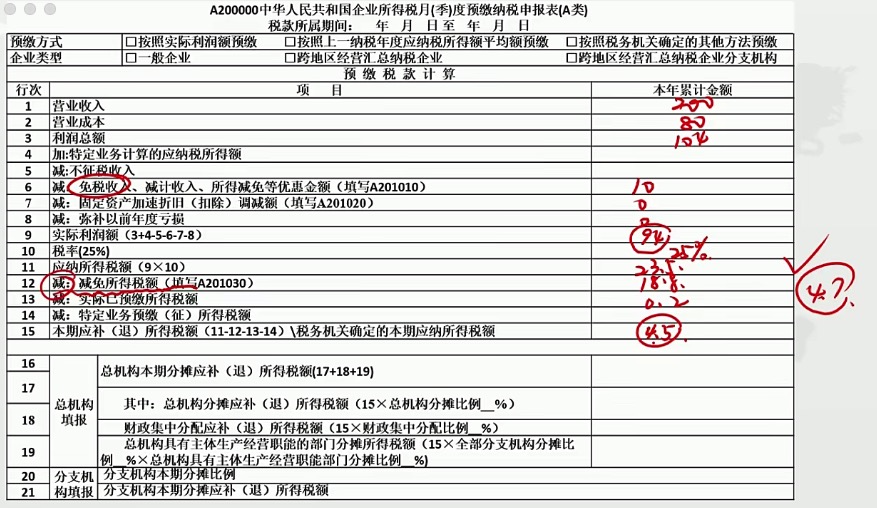 A200000中华人民共和国企业所得税月(季)度预缴纳税申报表(A类)
税款所属期间： 年 月 日至 年 月 日
预缴方式 □按照实际利润额预缴 □按照上一纳税年度应纳税所得额平均额预缴 □按照税务机关确定的其他方法预缴
企业类型 □一般企业 □跨地区经营汇总纳税企业 □跨地区经营汇总纳税企业分支机构
预缴税款计算
行次 项 目 本年累计金额
1 营业收入 200
2 营业成本 80
3 利润总额 104
4 加:特定业务计算的应纳税所得额
5 减:不征税收入
6 减：免税收入、减计收入、所得减免等优惠金额（填写A201010） 10
7 减：固定资产加速折旧（扣除）调减额（填写A201020） 0
8 减：弥补以前年度亏损 0
9 实际利润额（3+4-5-6-7-8） 94
10 税率(25%) 25%
11 应纳所得税额（9×10） 23.5
12 减：减免所得税额（填写A201030） 18.8
13 减：实际已预缴所得税额 0.2
14 减：特定业务预缴（征）所得税额
15 本期应补（退）所得税额（11-12-13-14）\税务机关确定的本期应纳所得税额 4.5
4.7
16 总机构本期分摊应补（退）所得税额(17+18+19)
总机构填报
17 其中：总机构分摊应补（退）所得税额（15×总机构分摊比例__%）
18 财政集中分配应补（退）所得税额（15×财政集中分配比例__%）
19 总机构具有主体生产经营职能的部门分摊所得税额（15×全部分支机构分摊比
例__%×总机构具有主体生产经营职能部门分摊比例__%)
20 分支机 分支机构本期分摊比例
21 构填报 分支机构本期分摊应补（退）所得税额